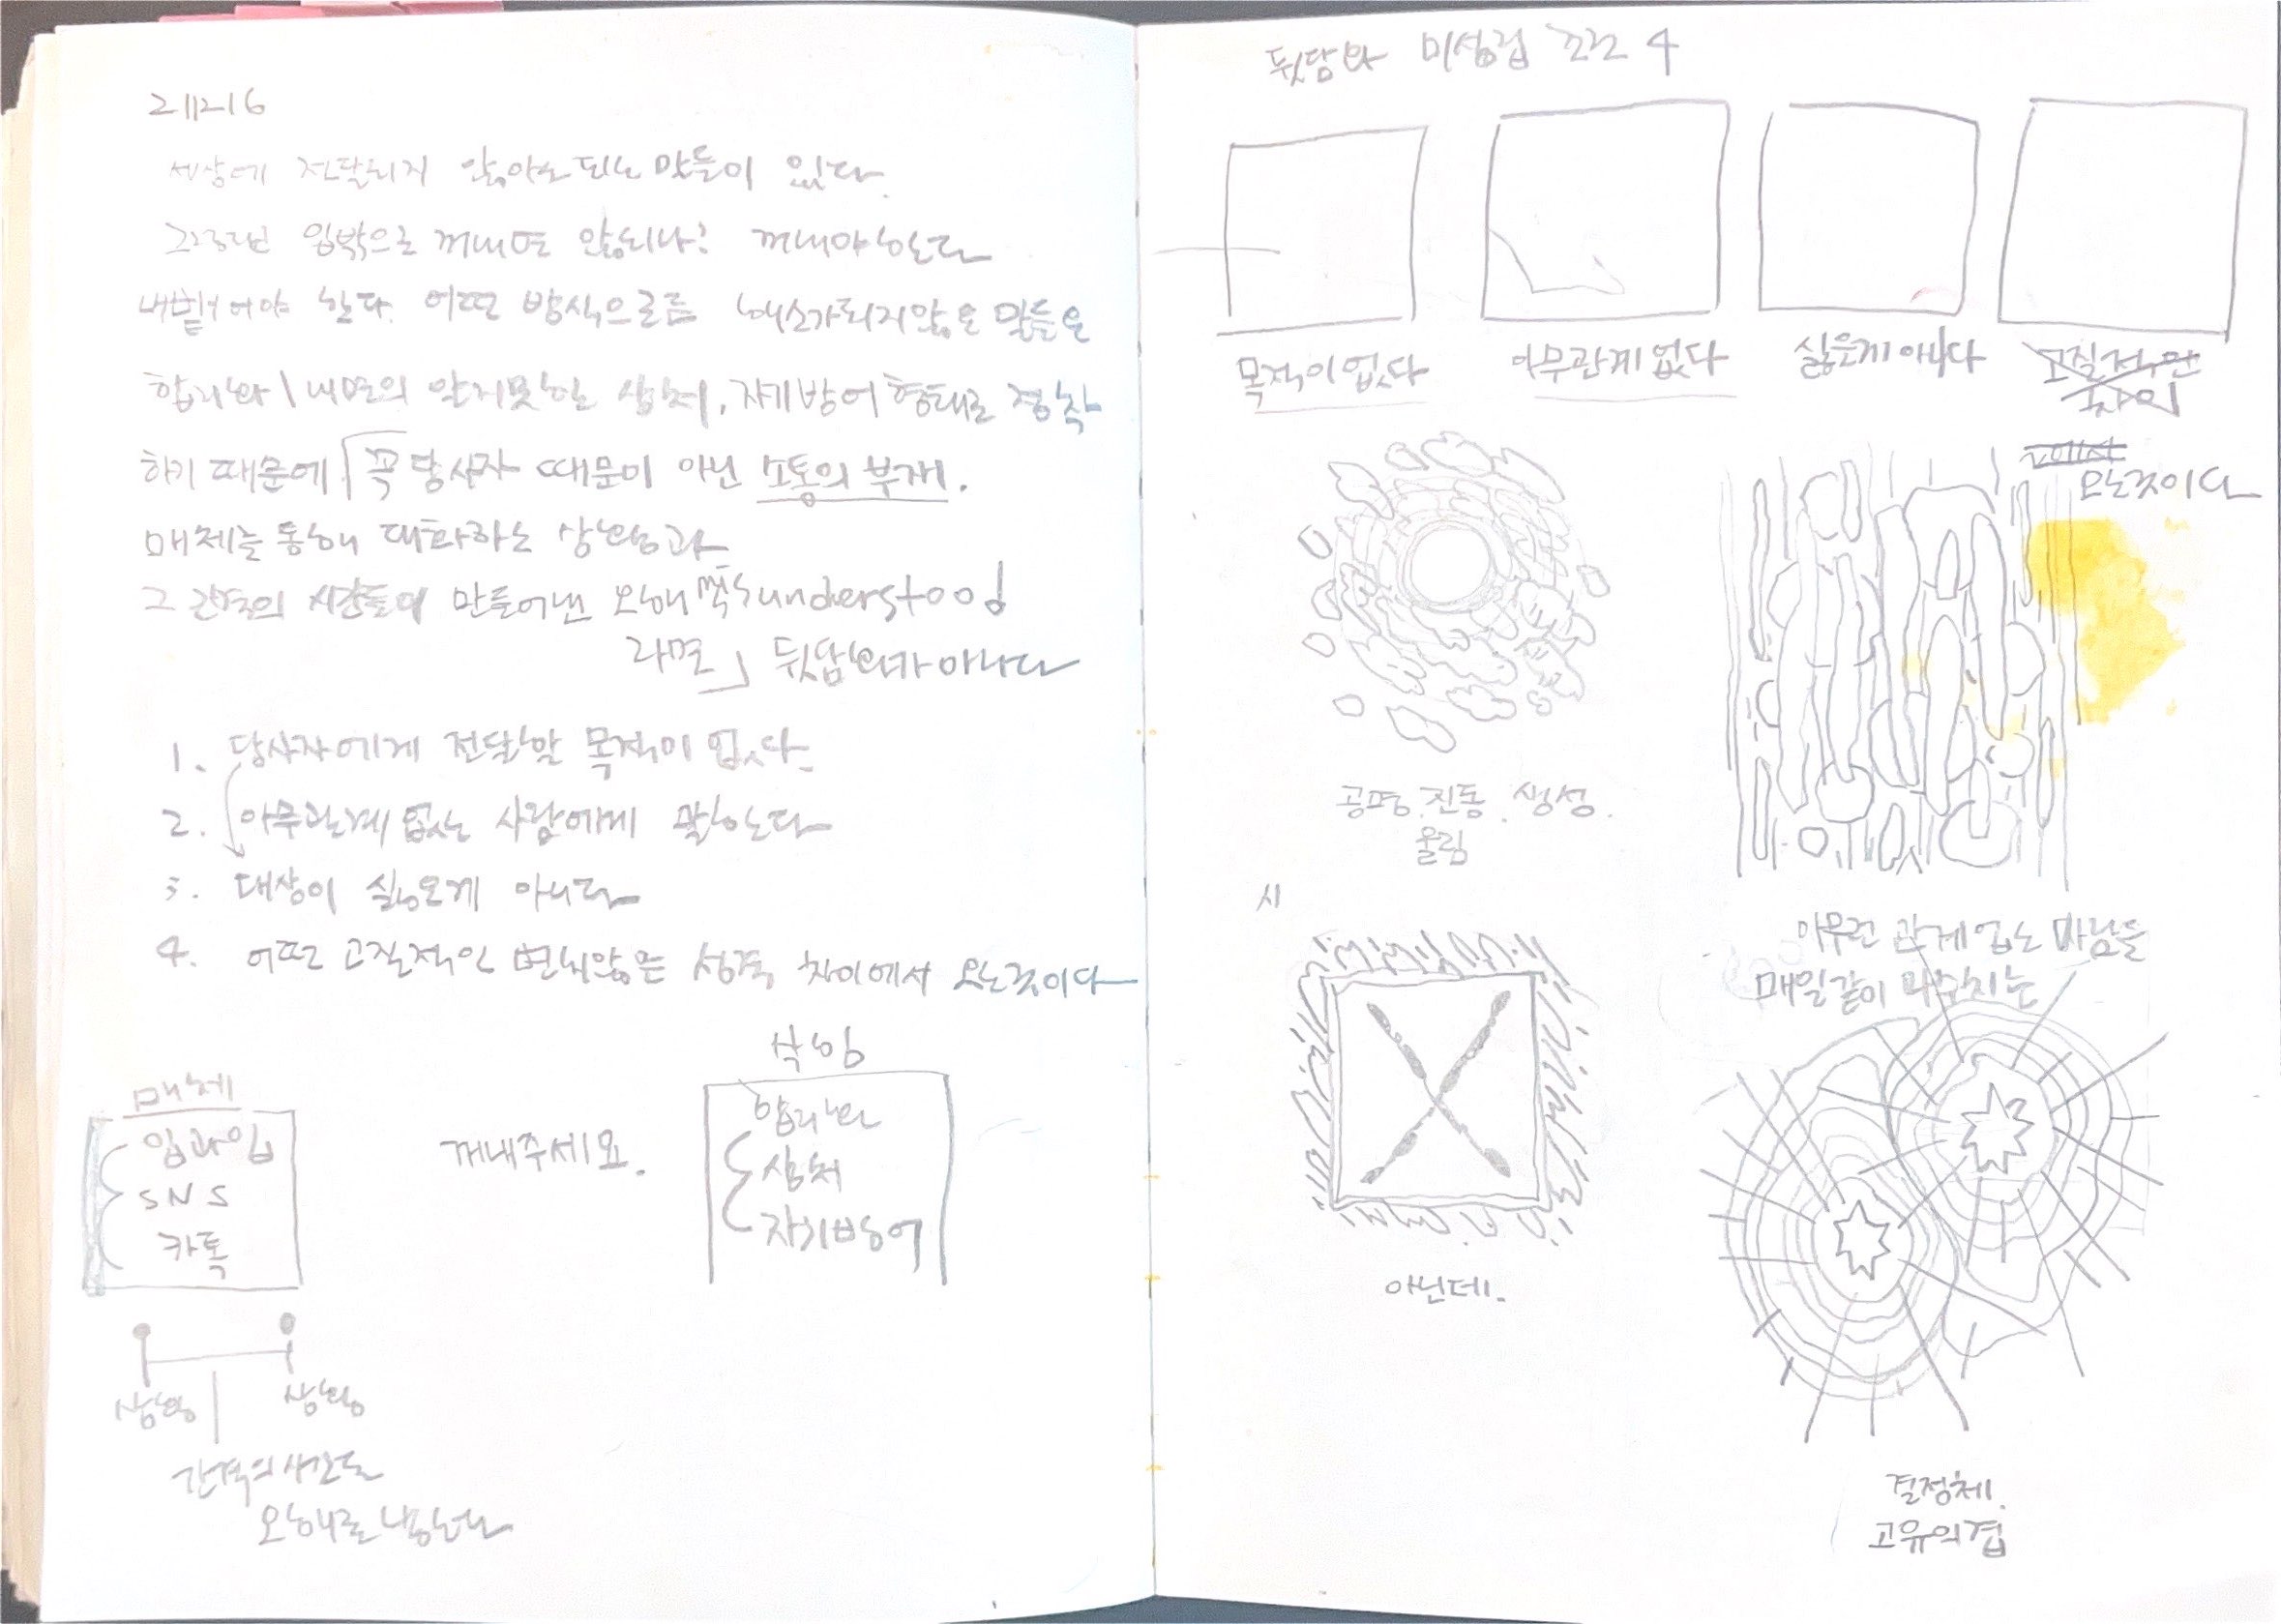 211216
세상에 전달되지 않아도 되는 말들이 있다.
그러면 입밖으로 꺼내면 안되나? 꺼내야한다
내뱉어야 한다. 어떤 방식으로든 해소가되지않은 말들은
합리화 \ 내면의 알지못한 상처, 자기방어 형태로 정착
하기 때문에 「꼭 당사자 때문이 아닌 소통의 부재.
매체를 통해 대화하는 상황과
그 간격의 시간들이 만들어낸 오해 쪽 understood
라면」 뒷담화가 아니다
1. 당사자에게 전달할 목적이 없다.
2. 아무관계 없는 사람에게 말한다
3. 대상이 싫은게 아니다
4. 어떤 고질적인 변치않은 성격 차이에서 오는것이다
매체
입과입
SNS
카톡
꺼내주세요.
합리화
상처
자기방어
상황
상황
간격의 시간들
오해로
뒷담화 미성립 조건 4
목적이 없다
아무관계 없다
싫은게 아니다
고질적인
차이
에서
오는것이다
공명. 진동. 생성.
울림
시
아닌데.
아무런 관계 없는 마음들
매일같이 마주치는
결정체.
고유의 겹